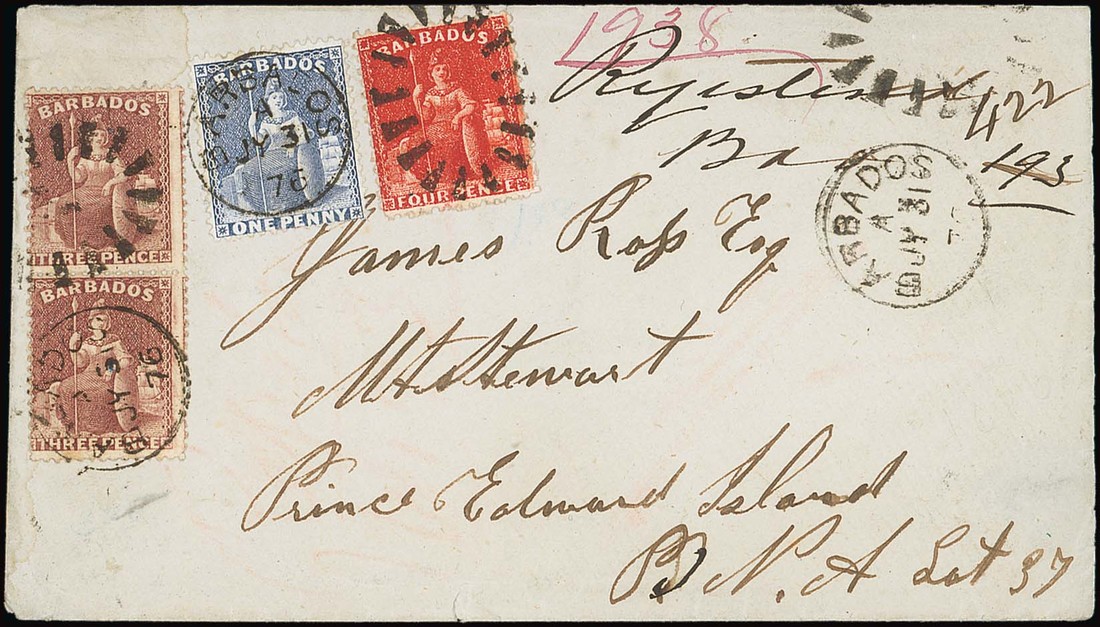 BARBADOS
THREE PENCE
BARBADOS
THREE PENCE
BARBADOS
ONE PENNY
BARBADOS
FOUR PENCE
BARBADOS
A
JY 31
76
1938
422
193
BARBADOS
A
JY 31
A
JY 31
76
James Ross Esq
Mt Stewart
Prince Edward Island
B. N. A Lot 37